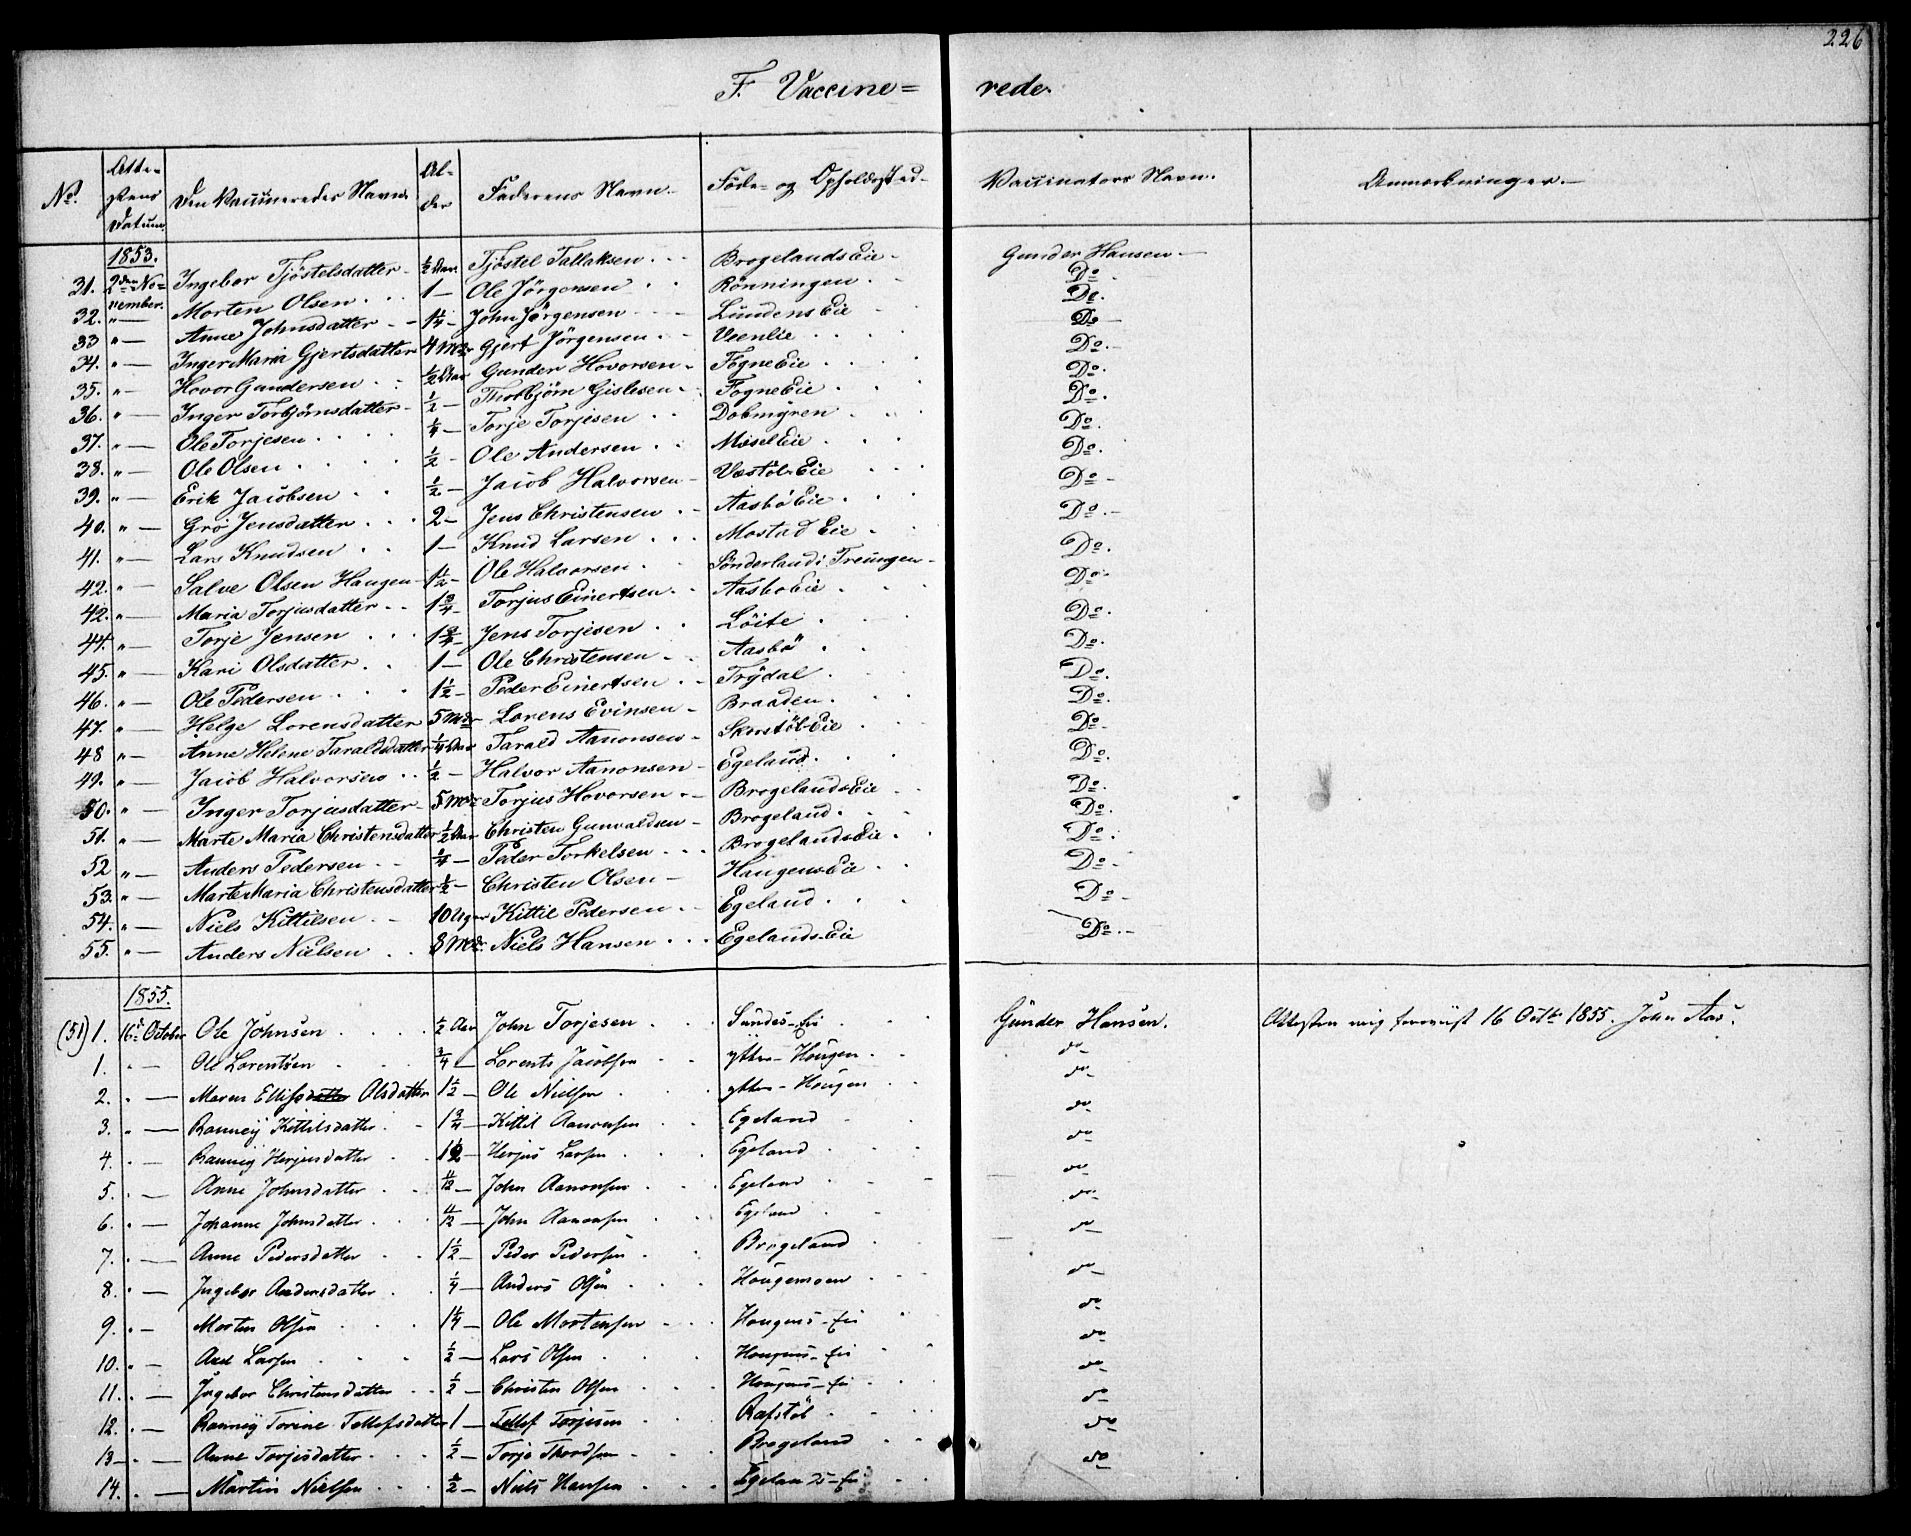 226
F. Vaccine= rede.
No. Attestens Datum Den Vaccineredes Navn Alder Faderens Navn. Føde- og Opholdssted. Vaccinators Navn. Anmærkninger.
1853.
31. 2den No- vember. Ingebor Tjöstelsdatter ½ Aar. Tjöstel Tallaksen Brogelands Eie Gunder Hansen
32. " — Morten Olsen 1 — Ole Jörgensen Rönningen Do
33 " — Anne Johnsdatter 1¼ — John Jörgensen Lundens Eie Do.
34. " — Inger Maria Gjertsdatter 4 Mdr Gjert Jörgensen Veenlie Do
35. " — Hovor Gundersen ½ Aar Gunder Hovorsen Fogne Eie Do.
36. " — Inger Torbjörnsdatter ½ — Thorbjörn Gislesen Fogne Eie Do.
37. " — Ole Torjesen ¼ — Torje Torjesen Dobmyren Do.
38. " — Ole Olsen ½ — Ole Andersen Misel Eie Do.
39. " — Erik Jacobsen ½ — Jacob Halvorsen Vestöl Eie Do.
40. " — Gro Jensdatter 2 — Jens Christensen Aasbö Eie Do
41. " — Lars Knudsen 1 — Knud Larsen Mostad Eie Do.
42. " — Salve Olsen Haugen 1½ — Ole Halvorsen Sönderland i Treungen Do.
42. " — Maria Torjusdatter 1¾ — Torjus Einertsen Aasbo Eie Do.
44. " — Torje Jensen 1¾ — Jens Torjesen Löite Do.
45. " — Kari Olsdatter 1 — Ole Christensen Aasbö Do.
46. " — Ole Pedersen 1½ — Peder Einertsen Trydal Do.
47. " — Helge Lorensdatter 5 Mdr Lorens Evinsen Braaden. Do.
48 " — Anne Helene Taraldsdatter ¼ Aar Tarald Aanonsen Skorstöl Eie Do.
49. " — Jacob Halvorsen ½ — Halvor Aanonsen Egeland. Do.
50. " — Inger Torjusdatter 5 Mdr Torjus Hovorsen Brogelands Eie Do.
51. " — Marte Maria Christensdatter ½ Aar Christen Gunvaldsen Brogeland. Do.
52 " — Anders Pedersen ¼ — Peder Torkelsen Brogelands Eie. Do.
53. " — Marte Maria Christensdatter ½ — Christen Olsen Haugens Eie Do
54. " — Niels Kittilsen 10 Uger Kittil Pedersen Egeland Do
55. " — Anders Nielsen 8 Mdr. Niels Hansen Egelands Eie Do.
1855.
(51) 1. 16de October Ole Johnsen ½ Aar John Torjesen Sundes-Eie Günder Hansen. Attesten mig foreviist 16 Octbr 1855. John Aas.
1. " — Ole Lorentsen ¾ — Lorents Jacobsen ytter-Hougen do
2. " — Maren Ellifsdatter Olsdatter 1½ — Ole Nielsen ytter-Hougen do
3. " — Ranneÿ Kittilsdatter 1¾ — Kittil Aanonsen Egeland do
4. " — Ranneÿ Herjusdatter Herjus Larsen Egeland do
5. " — Anne Johnsdatter 11/12 — John Aanonsen Egeland do
6. " — Johanne Johnsdatter 11/12 — John Aanonsen Egeland do
7. " — Anne Pedersdatter 1½ — Peder Pedersen Brogeland do
8. " — Ingebor Andersdatter ¼ — Anders Olsen Hougemoen do
9. " — Morten Olsen 1¼ — Ole Mortensen Hougens-Eie do
10. " — Axel Larsen ½ — Lars Olsen Hougens-Eie do
11. " — Ingebor Christensdatter ½ — Christen Olsen Hougens-Eie do
12. " — Ranneÿ Torine Tellefsdatter 1 — Tellef Torjesen Rafstöl do
13 — " — Anne Torjesdatter ½ — Torje Thordsen Brogeland do
14. " — Martin Nielsen ½ — Niels Hansen Egelands-Eie do